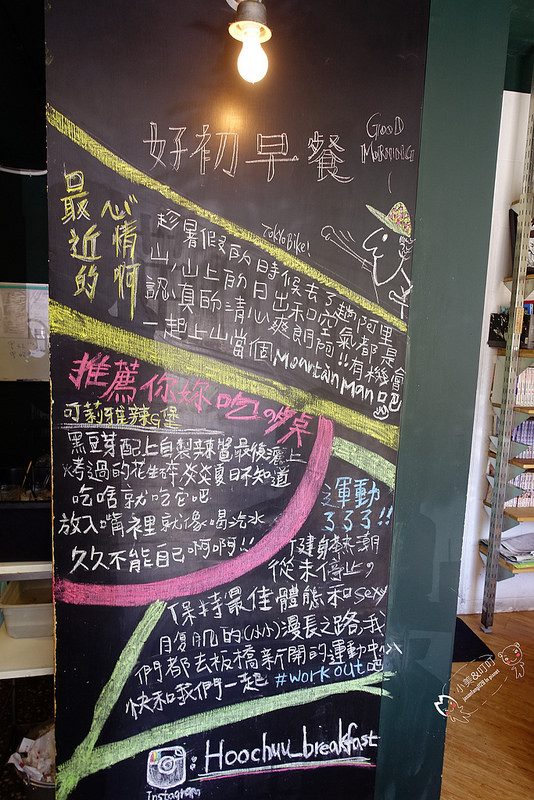 好初早餐
GOOD
MORNING
最近的
心情啊
ToKYo BiKe!
趁暑假的時候去了趟阿里
山,山上的日出和空氣都是
認真的清心爽朗阿!!有機會
一起上山當個Mountain Man吧
推薦你妳吃吃桌
可莉雅辣G堡
黑豆芽配上自製辣醬最後灑上
烤過的花生碎,炎炎夏日不知道
吃啥就吃它吧
放入嘴裡就像喝汽水
久久不能自已啊啊!!
運動
了了了!!
健身熱潮
從未停止,
保持最佳體態和sexy
腹肌的(小小)漫長之路,我
們都去板橋新開的運動中心
快和我們一起 #workout吧
Instagram
: Hoochuu_breakfast
小美&叮叮